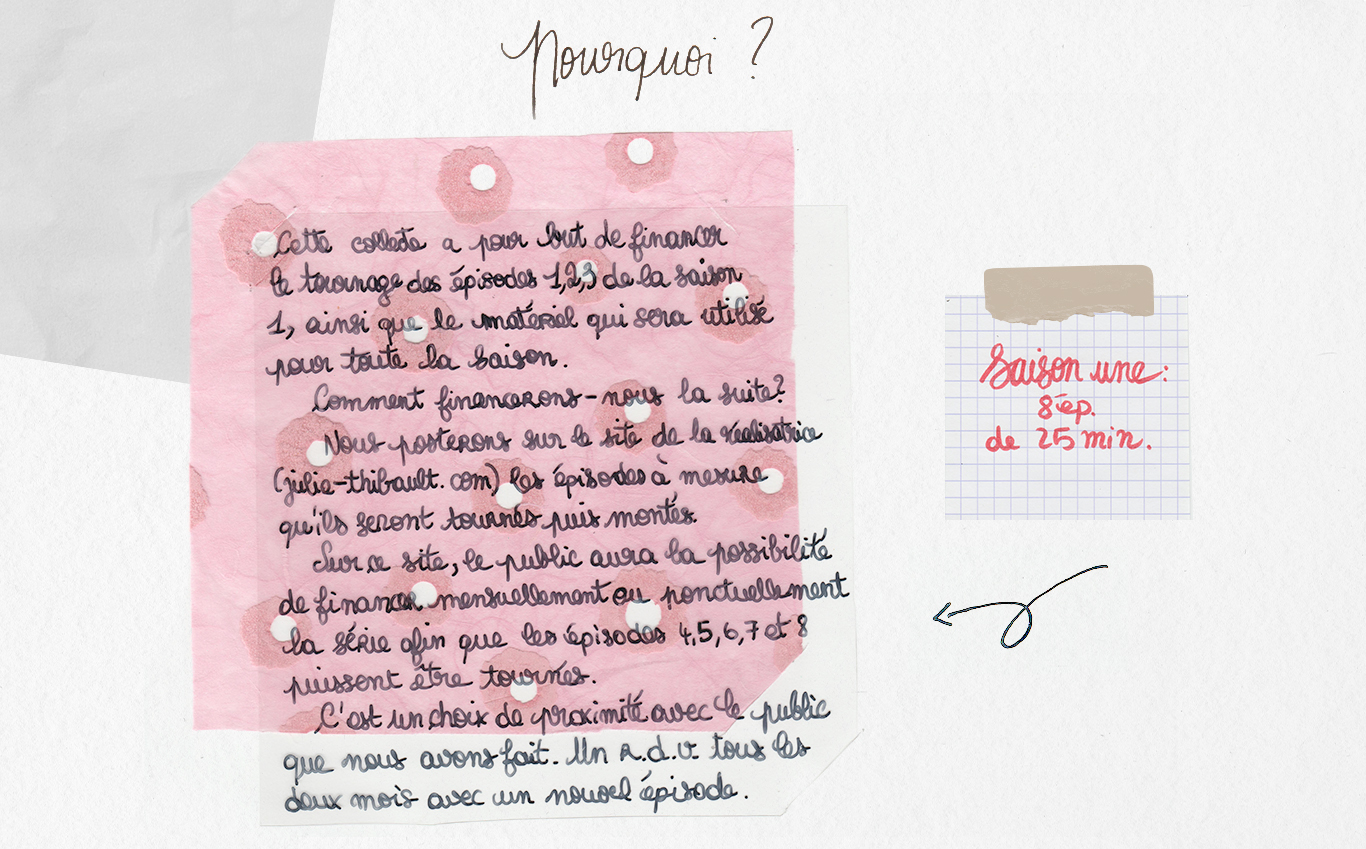 Pourquoi ?
Cette collecte a pour but de financer
le tournage des épisodes 1,2,3 de la saison
1, ainsi que le matériel qui sera utilisé
pour toute la saison.
Comment financerons-nous la suite?
Nous posterons sur le site de la réalisatrice
(julie-thibault.com) les épisodes à mesure
qu'ils seront tournés puis montés.
Sur ce site, le public aura la possibilité
de financer mensuellement ou ponctuellement
la série afin que les épisodes 4,5,6,7 et 8
puissent être tournés.
C'est un choix de proximité avec le public
que nous avons fait. Un r.d.v. tous les
deux mois avec un nouvel épisode.
Saison une :
8 ép.
de 25 min.